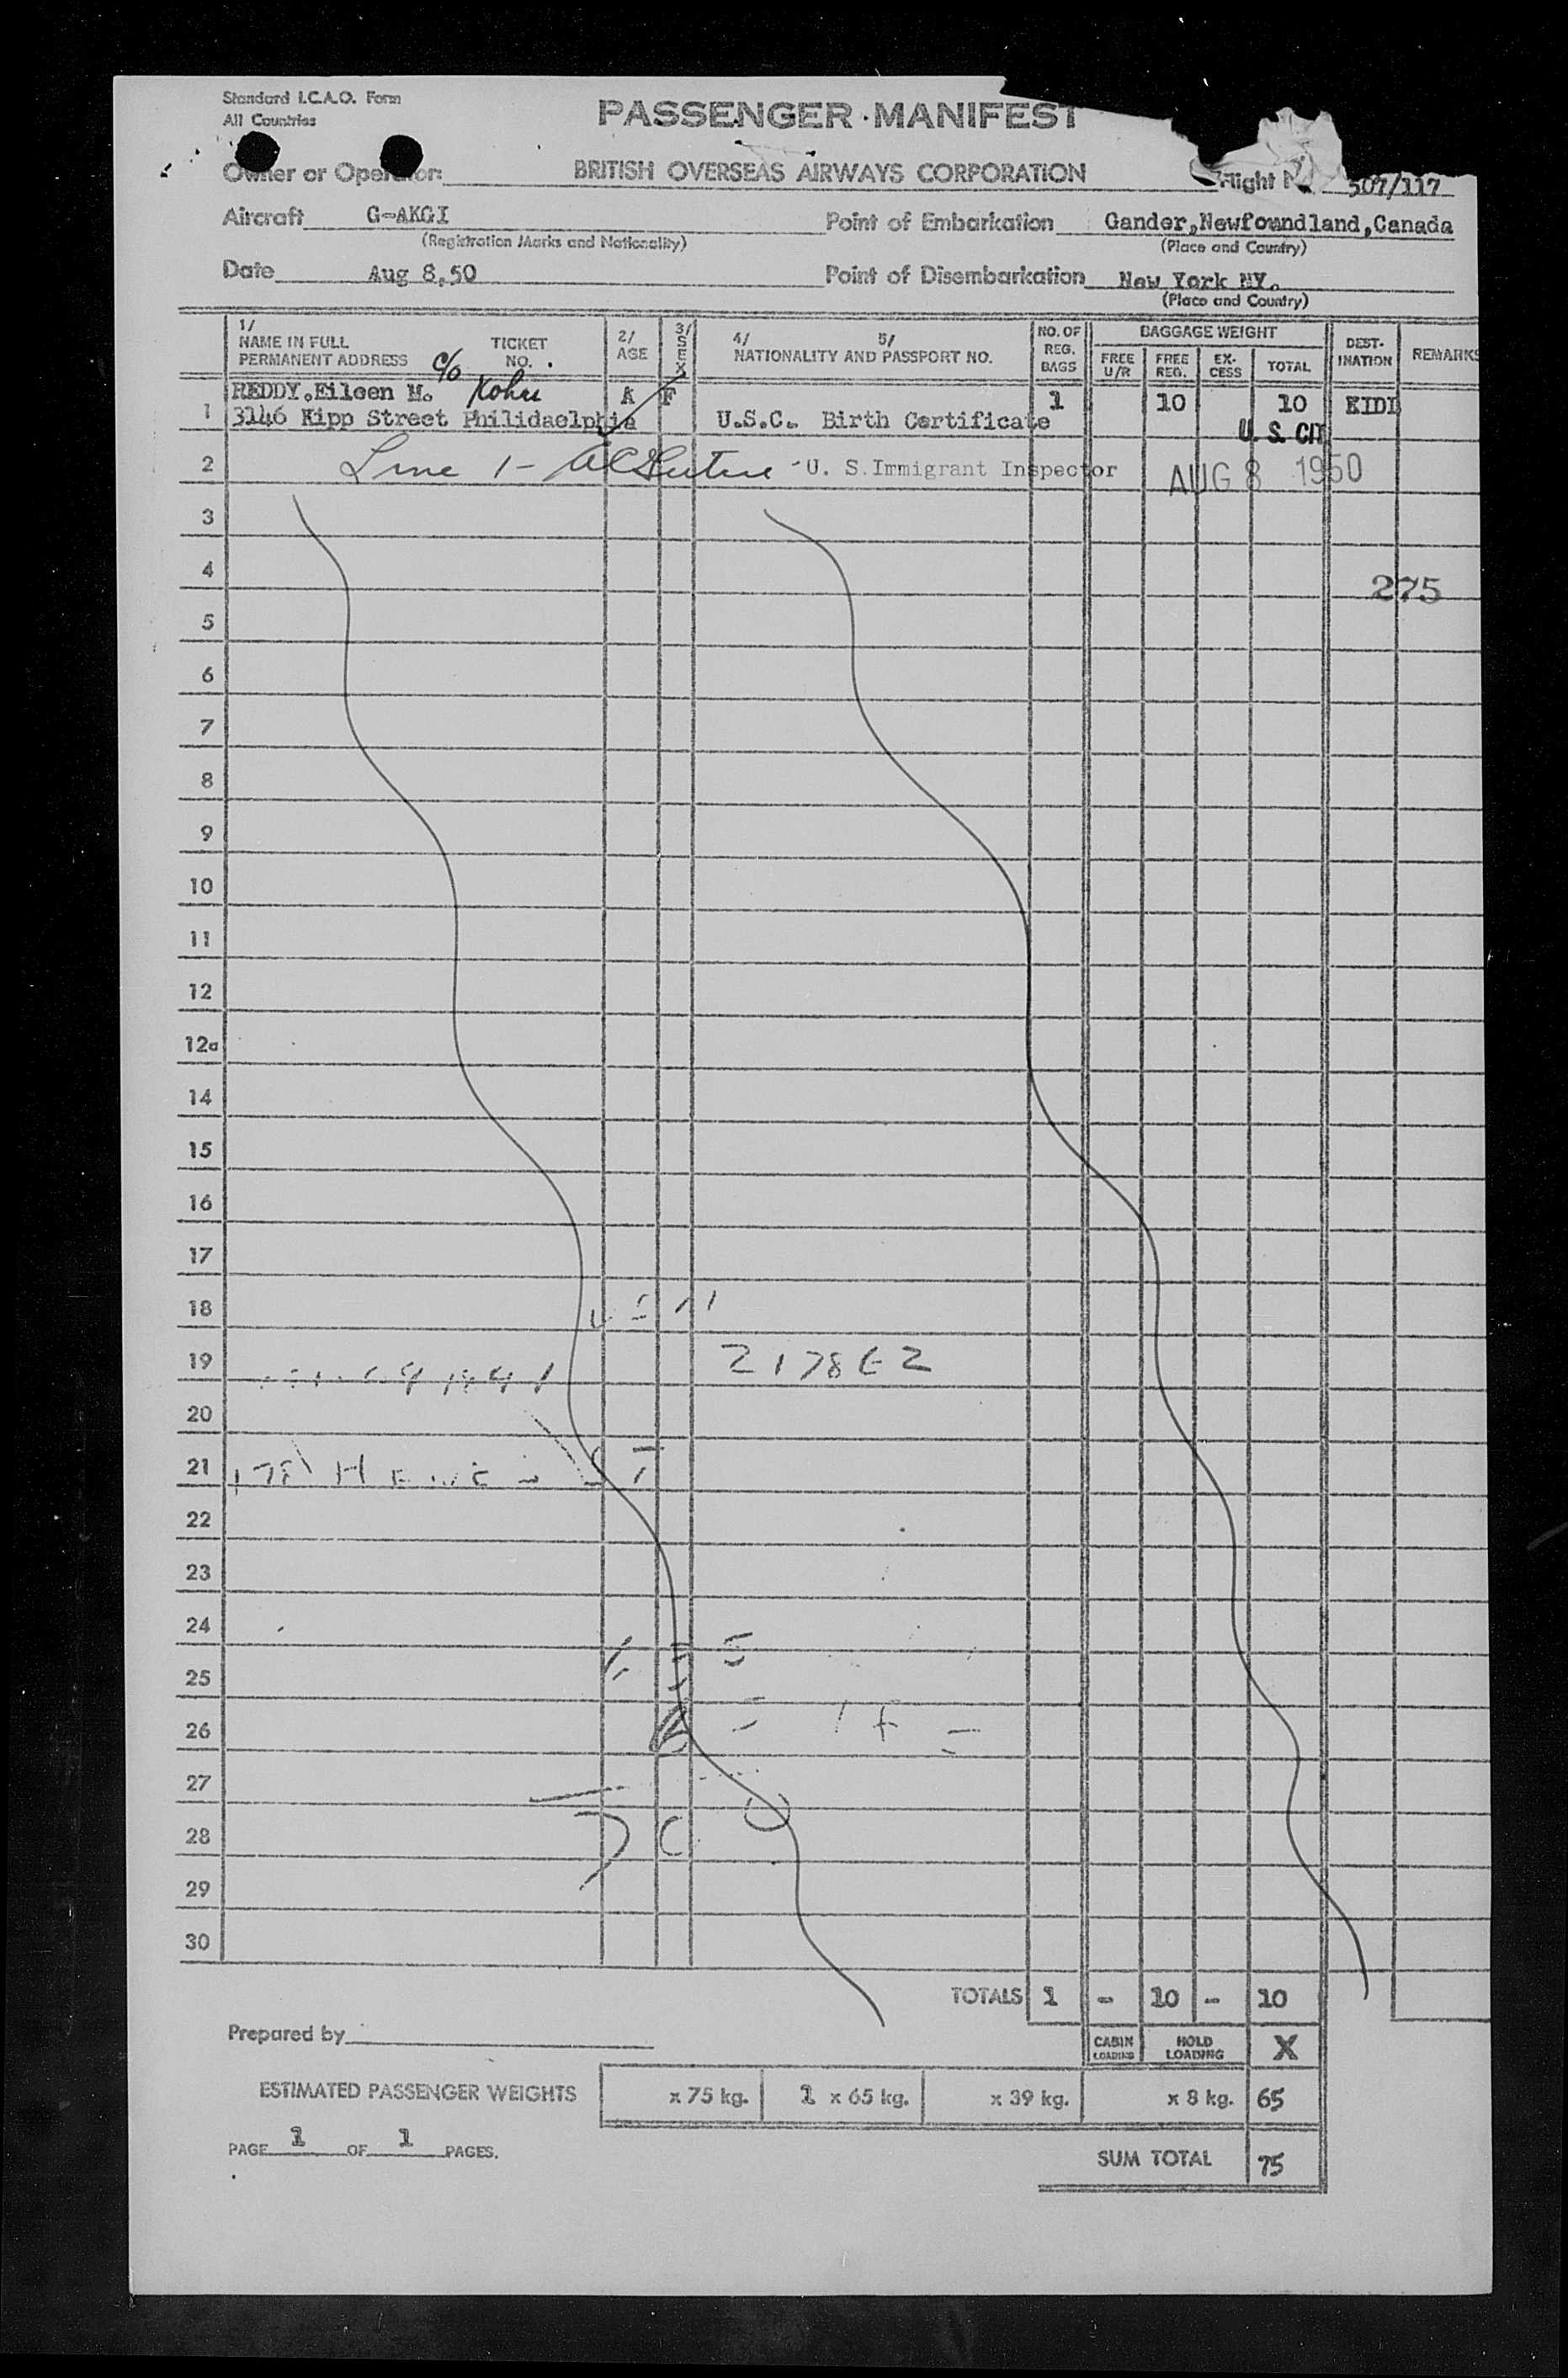 Standard I.C.A.O. Form
All Countries
PASSENGER MANIFEST
Owner or Operator: BRITISH OVERSEAS AIRWAYS CORPORATION Flight 507/117
Aircraft G-AKGI Point of Embarkation Gander,Newfoundland,Canada
(Registration Marks and Nationality) (Place and Country)
Date Aug 8,50 Point of Disembarkation New York NY.
(Place and Country)
1/ NAME IN FULL PERMANENT ADDRESS TICKET NO. 2/ AGE 3/ SEX 4/ 5/ NATIONALITY AND PASSPORT NO. NO. OF REG. BAGS BAGGAGE WEIGHT FREE U/R FREE REG. EX-CESS TOTAL DEST-INATION REMARKS
REDDY.Eileen M. c/o A F 1 10 10 KIDL
1 3146 Kipp Street Philidaelphia U.S.C. Birth Certificate U. S. CIT
2 Line 1- U. S. Immigrant Inspector AUG 8 1950
3
4 275
5
6
7
8
9
10
11
12
12a
14
15
16
17
18
19 217862
20
21
22
23
24
25
26
27
28
29
30
TOTALS 1 - 10 - 10
Prepared by CABIN LOADING HOLD LOADING X
ESTIMATED PASSENGER WEIGHTS x 75 kg. 1 x 65 kg. x 39 kg. x 8 kg. 65
PAGE 1 OF 1 PAGES.
SUM TOTAL 75